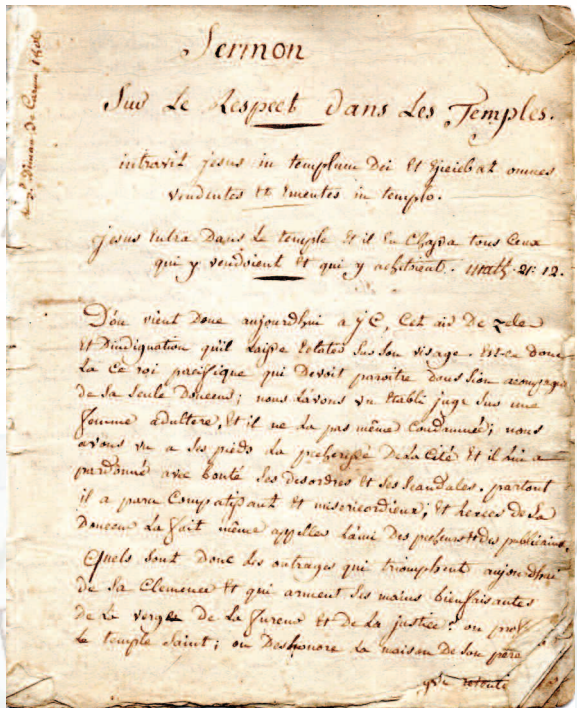 Sermon
Sur Le Respect dans Les Temples.
intravit jesus in templum Dei Et Ejiciebat omnes
vendentes Et Ementes in templo.
jesus Entra Dans Le temple Et il En Chassa tous Ceux
qui y vendoient Et qui y achitoient. Math. 21: 12.
D'ou vient Donc aujourdhui a J C, Cet air De zele
Et Dindignation quil Laisse Eclater Sur Son visage. Est-Ce Donc
La Ce roi pacifique qui Devoit paroitre dans Sion acompagné
de Sa Seule Douceur; nous Lavons vu Etabli juge Sur une
femme adultere, Et il ne La pas même Condamnée; nous
avons vu a Ses pieds La pecheresse De La Cité Et il Lui a
pardonné avec bonté Ses Desordres Et Ses Scandales. partout
il a paru Compatissant Et misericordieux; Et Lexces de Sa
Douceur La fait même appeller Lami Des pecheurs Et des publicains.
Quels Sont Donc Les outrages qui triomphent aujourdhui
de Sa Clemence Et qui arment Ses mains bienfaisantes
de La verge de La fureur Et de La justice? on
Le temple Saint; on Deshonore La maison De Son pere